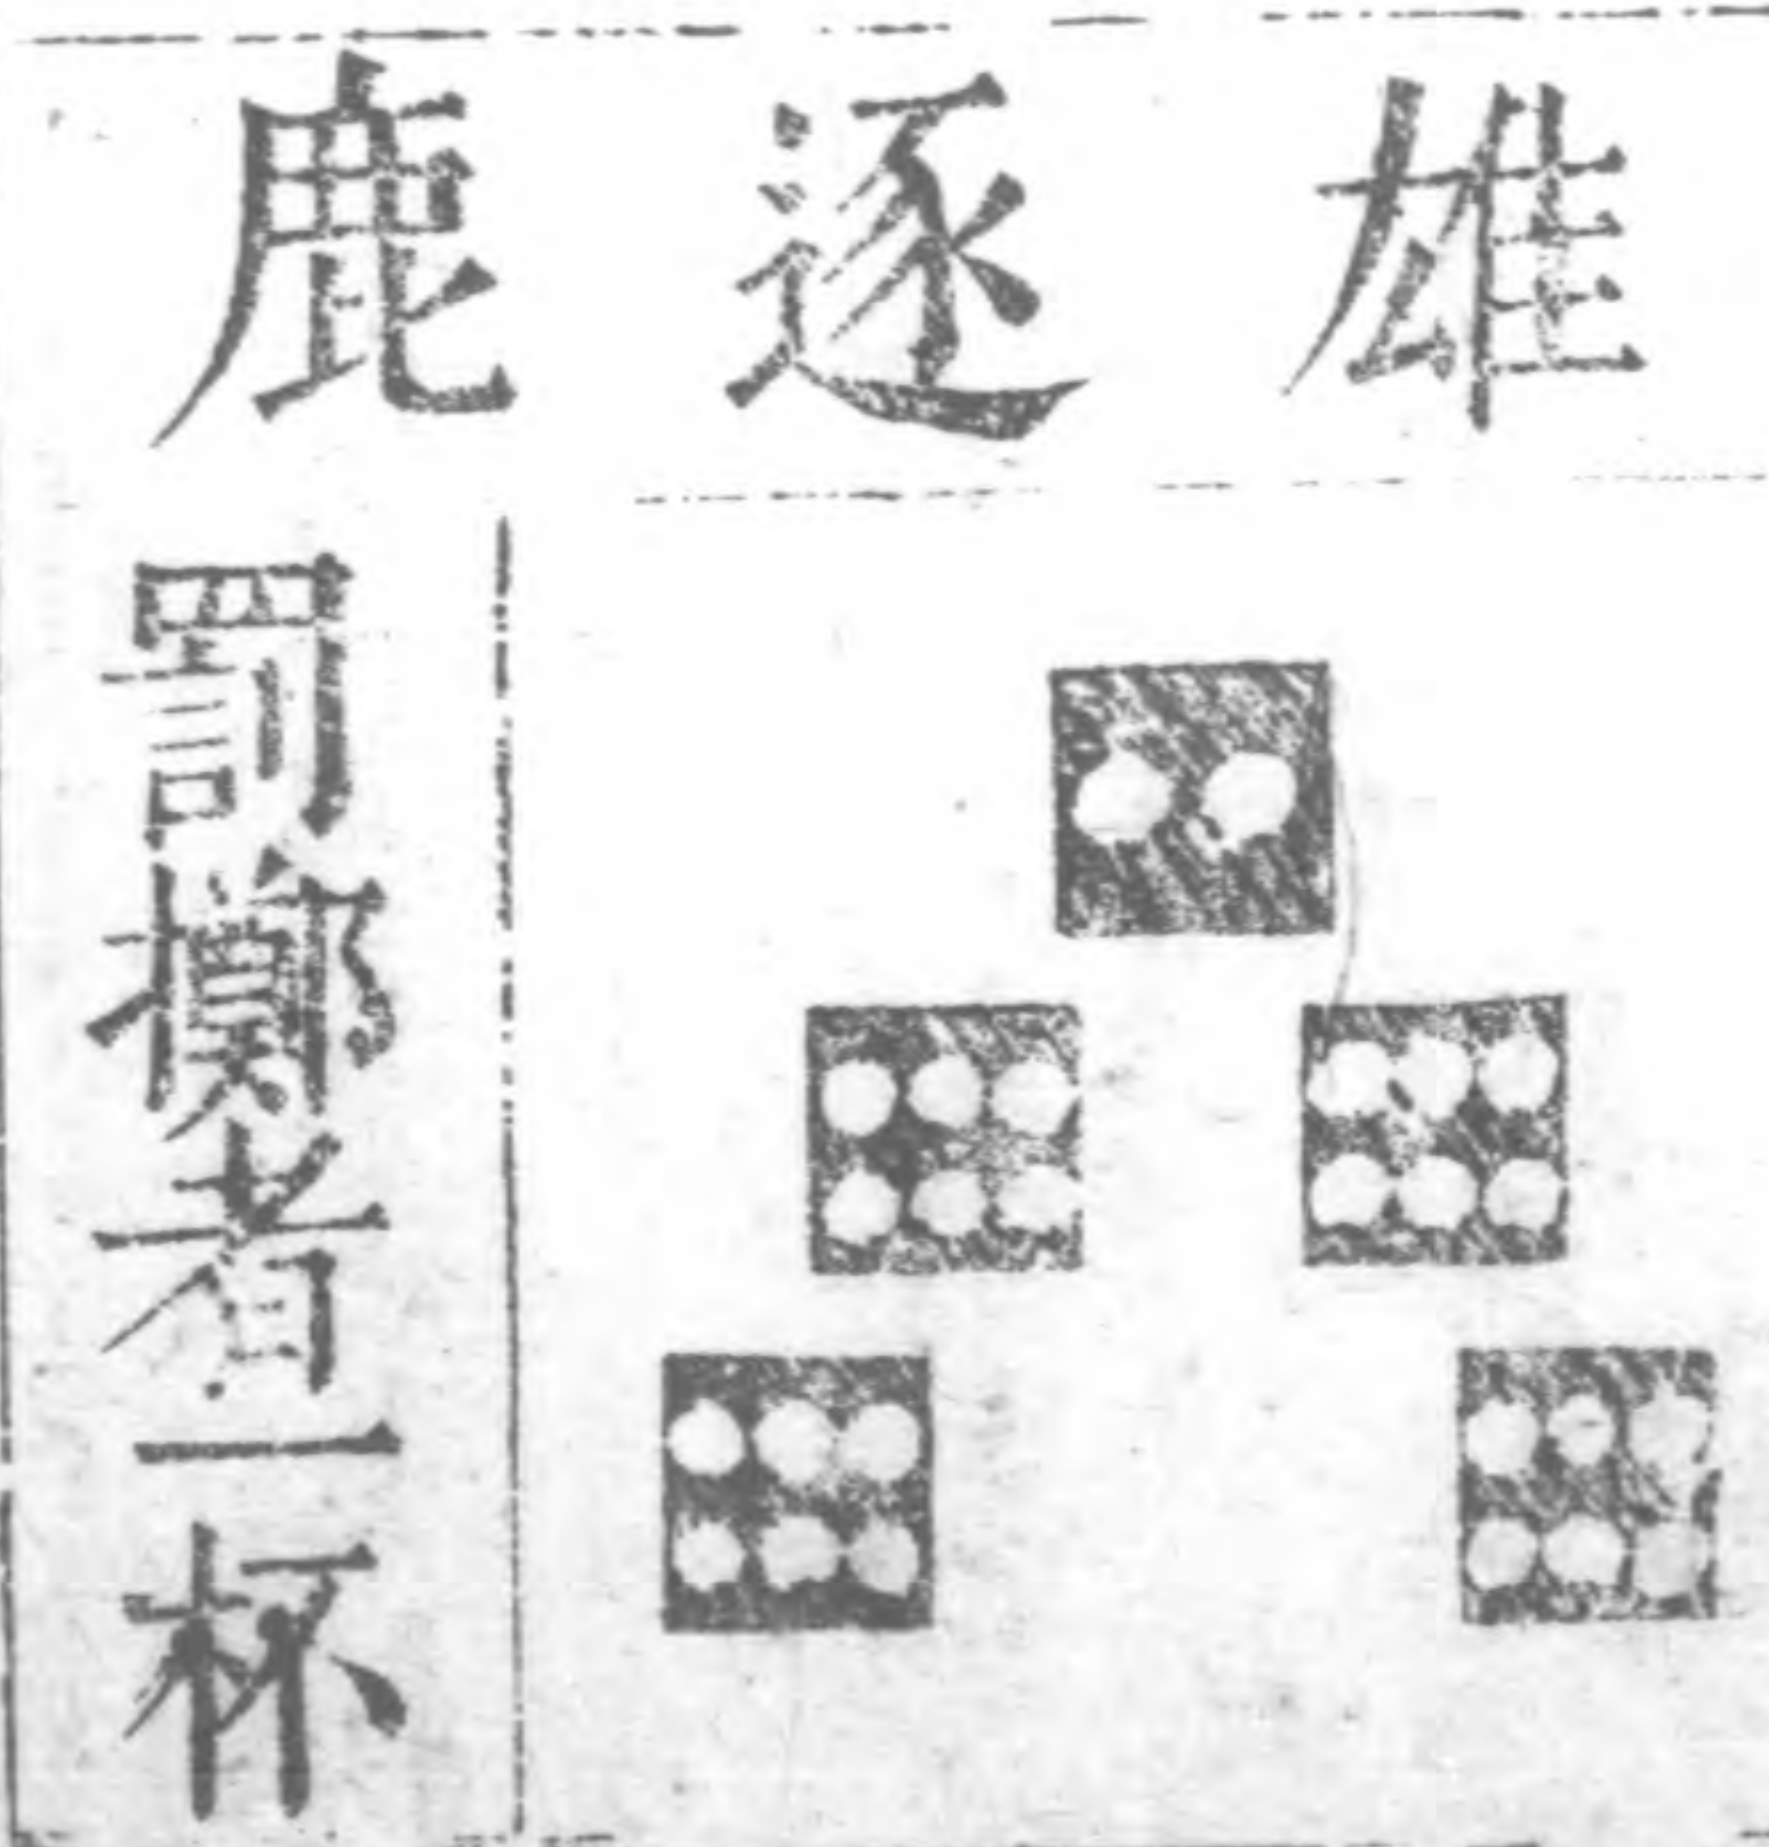 雄逐鹿
罰擲者一杯